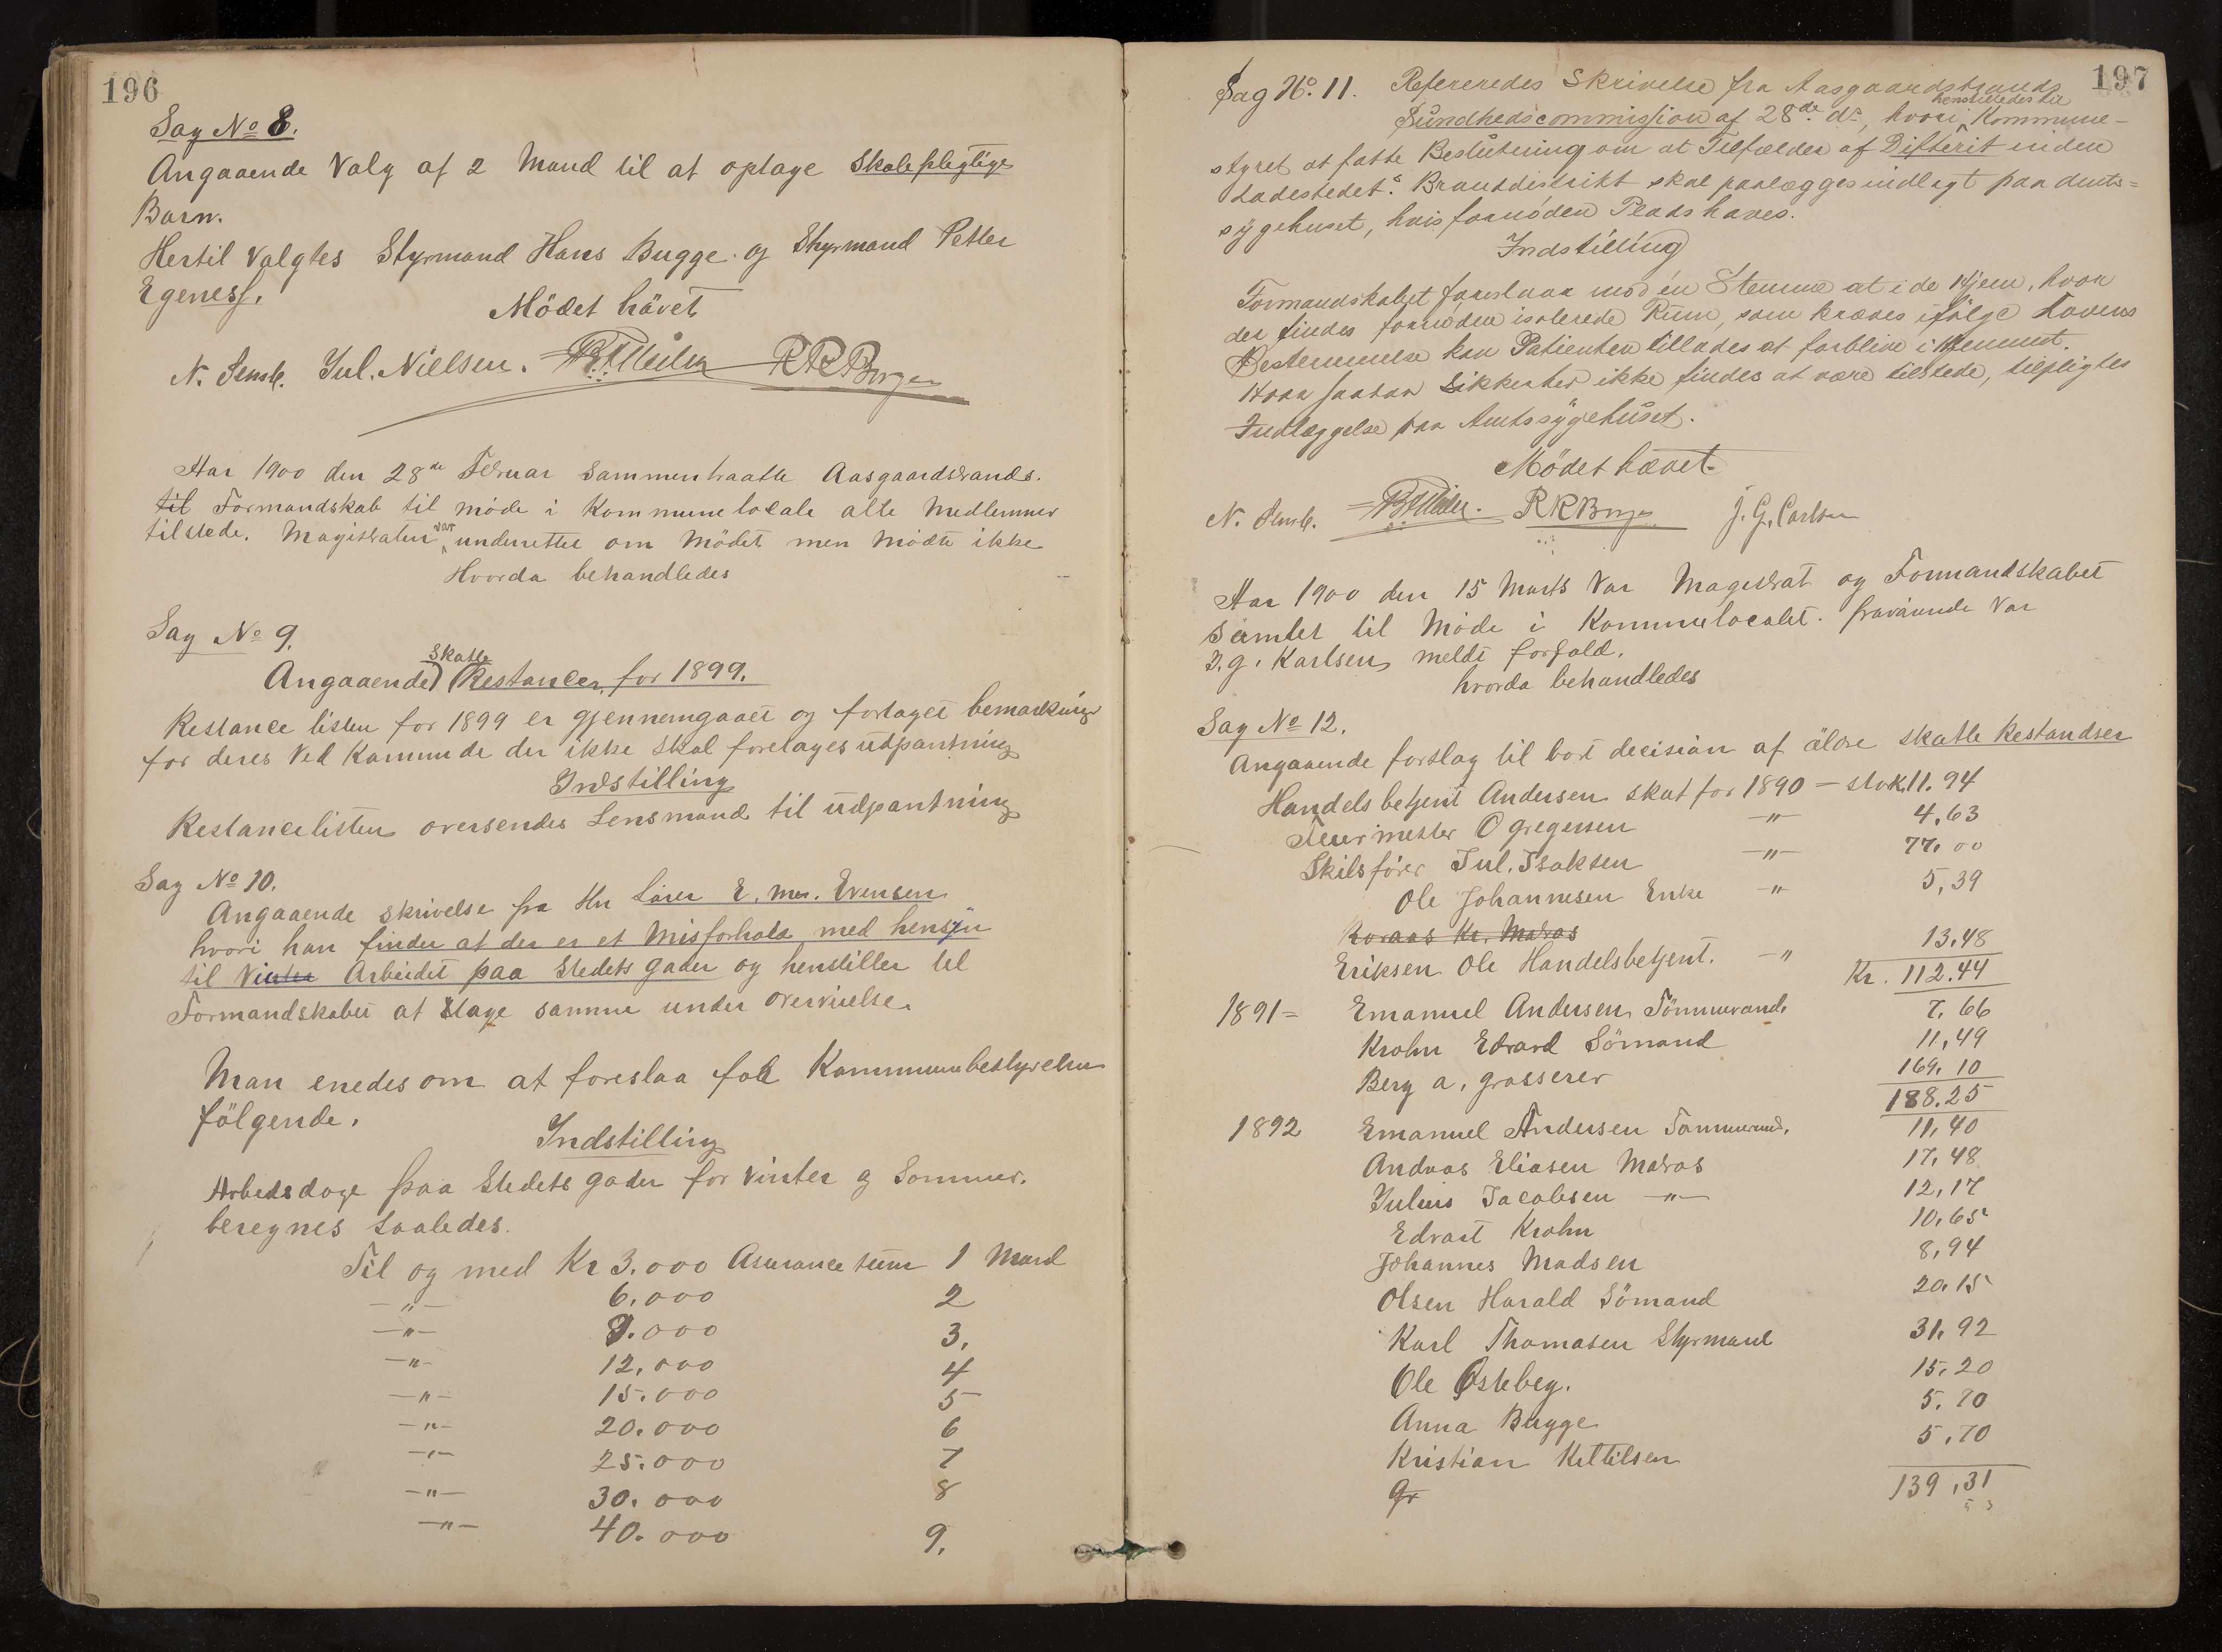 196
Sag No 8.
Angaaende Valg af 2 Mand til at optage Skolepligtige
Barn.
Hertil Valgtes Styrmand Hans Bugge og Styrmand Petter
Egeness.
Mödet hävet
N. Semb. Jul. Nielsen. RRBorge
Aar 1900 den 28de Februar Sammentraatte Aasgaardstrands.
til Formandskab til möde i Kommunelocale alle Medlemmer
tilstede. Magistraten var underrettet om Mödet men Mödte ikke
Hvorda behandledes
Sag No 9.
Angaaende Skatte Restancer for 1899.
Restance listen for 1899 er gjennemgaaet og fortaget bemærkning
for deres Ved Kommende der ikke skal foretages udpantning
Indstilling
Restancelisten oversendes Lensmand til udpantning
Sag No 10.
Angaaende skrivelse fra Hr Lärer E. Evensen
hvori han finder at der er et Misforhold med hensyn
til Vinter Arbeidet paa Stedets gader og henstiller til
Formandskabet at tage samme under overveielse.
Man enedes om at foreslaa for Kommunebestyrelsen
fölgende.
Indstilling
Arbeidsdage paa Stedets gader for Vinter og Sommer.
beregnes saaledes.
Til og med Kr 3.000 Asurance sum 1 Mand
—"— 6.000 2
—"— 9.000 3.
—"— 12.000 4
—"— 15.000 5
—"— 20.000 6
—"— 25.000 7
—"— 30.000 8
—"— 40.000 9.
197
Sag No. 11. Refereredes Skrivelse fra Aasgaardstrands
Sundhedscommission af 28de ds, hvori henstilledes til Kommune-
styret at fatte Beslutning om at Tilfælder af Difterit inden
Ladestedets Branddistrikt skal paalægges indlagt paa Amts=
sygehuset, hvis fornöden Plads haves.
Indstilling
Formandskabet foreslaar mod én Stemme at i de Hjem, hvor
der findes fornödne isolerede Rum, som kræves ifölge Lovens
Bestemmelse kan Patienten tillades at forblive i Hjemmet.
Hvor saadan Sikkerhed ikke findes at være tilstede, tilpligtes
Indlæggelse paa Amtssygehuset.
Mödet hævet.
N. Semb. RRBorge J. G. Carlsen
Aar 1900 den 15 Marts Var Magistrat og Formandskabet
Samlet til Möde i Kommunelocalet. fraværende Var
J. G. Karlsen meldt forfald.
hvorda behandledes
Sag No 12.
Angaaende forslag til bort decision af äldre skatte Restandser
Handelsbetjent Andersen skat for 1890 — stok 11.94
Muurmester O Gregersen —"— 4,63
Skibsförer Jul. Isaksen —"— 77.00
Ole Johannesen Enke —"— 5,39
Koraas Kr. Matros
Eriksen Ole Handelsbetjent. —" 13.48
Kr. 112.44
1891 = Emanuel Andersen Tömmermand. 7.66
Krohn Edvard Sömand 11,49
Berg A. grosserer 169.10
188.25
1892 Emanuel Andersen Tömmermd. 11,40
Andreas Eliasen Matros 17,48
Julius Jacobsen —"— 12,17
Edvart Krohn 10.65
Johannes Madsen 8,94
Olsen Harald Sömand 20.15
Karl Thomasen Styrmand 31,92
Ole Østeberg. 15,20
Anna Bugge 5.70
Kristian Kittilsen 5,70
Gr
139,31